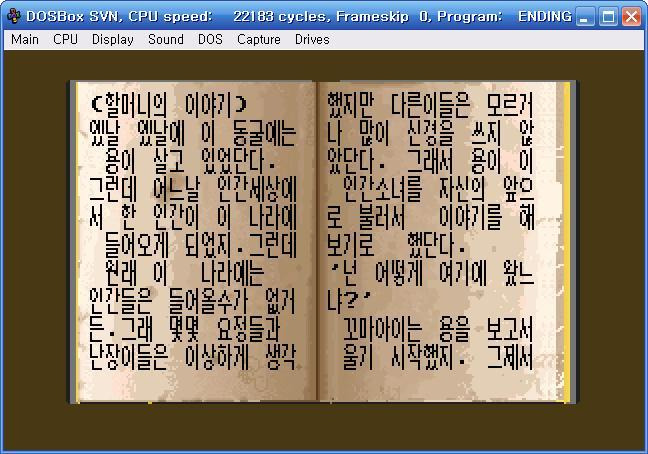 DOSBox SVN, CPU speed: 22183 cycles, Frameskip 0, Program: ENDING
Main CPU Display Sound DOS Capture Drives
(할머니의 이야기)
옜날 옜날에 이 동굴에는
용이 살고 있었단다.
그런데 어느날 인간세상에
서 한 인간이 이 나라에
들어오게 되었지.그런데
원래 이 나라에는
인간들은 들어올수가 없거
든.그래 몇몇 요정들과
난장이들은 이상하게 생각
했지만 다른이들은 모르거
나 많이 신경을 쓰지 않
았단다. 그래서 용이 이
인간소녀를 자신의 앞으
로 불러서 이야기를 해
보기로 했단다.
'넌 어떻게 여기에 왔느
냐?'
꼬마아이는 용을 보고서
울기 시작했지. 그제서